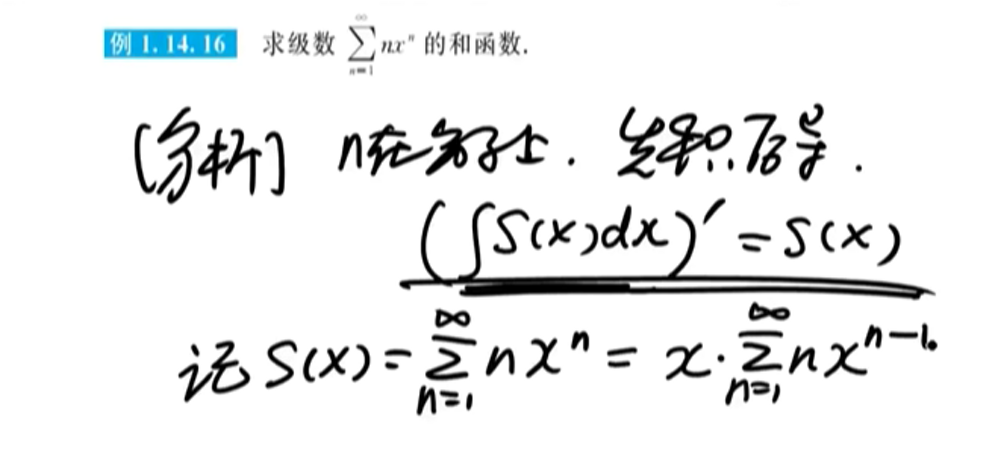 例 1.14.16 求级数 $\sum_{n=1}^{\infty} nx^n$ 的和函数.
[分析] n在分子上. 先积后导.
$(\int S(x)dx)' = S(x)$
记 $S(x) = \sum_{n=1}^{\infty} nx^n = x \cdot \sum_{n=1}^{\infty} nx^{n-1}$.